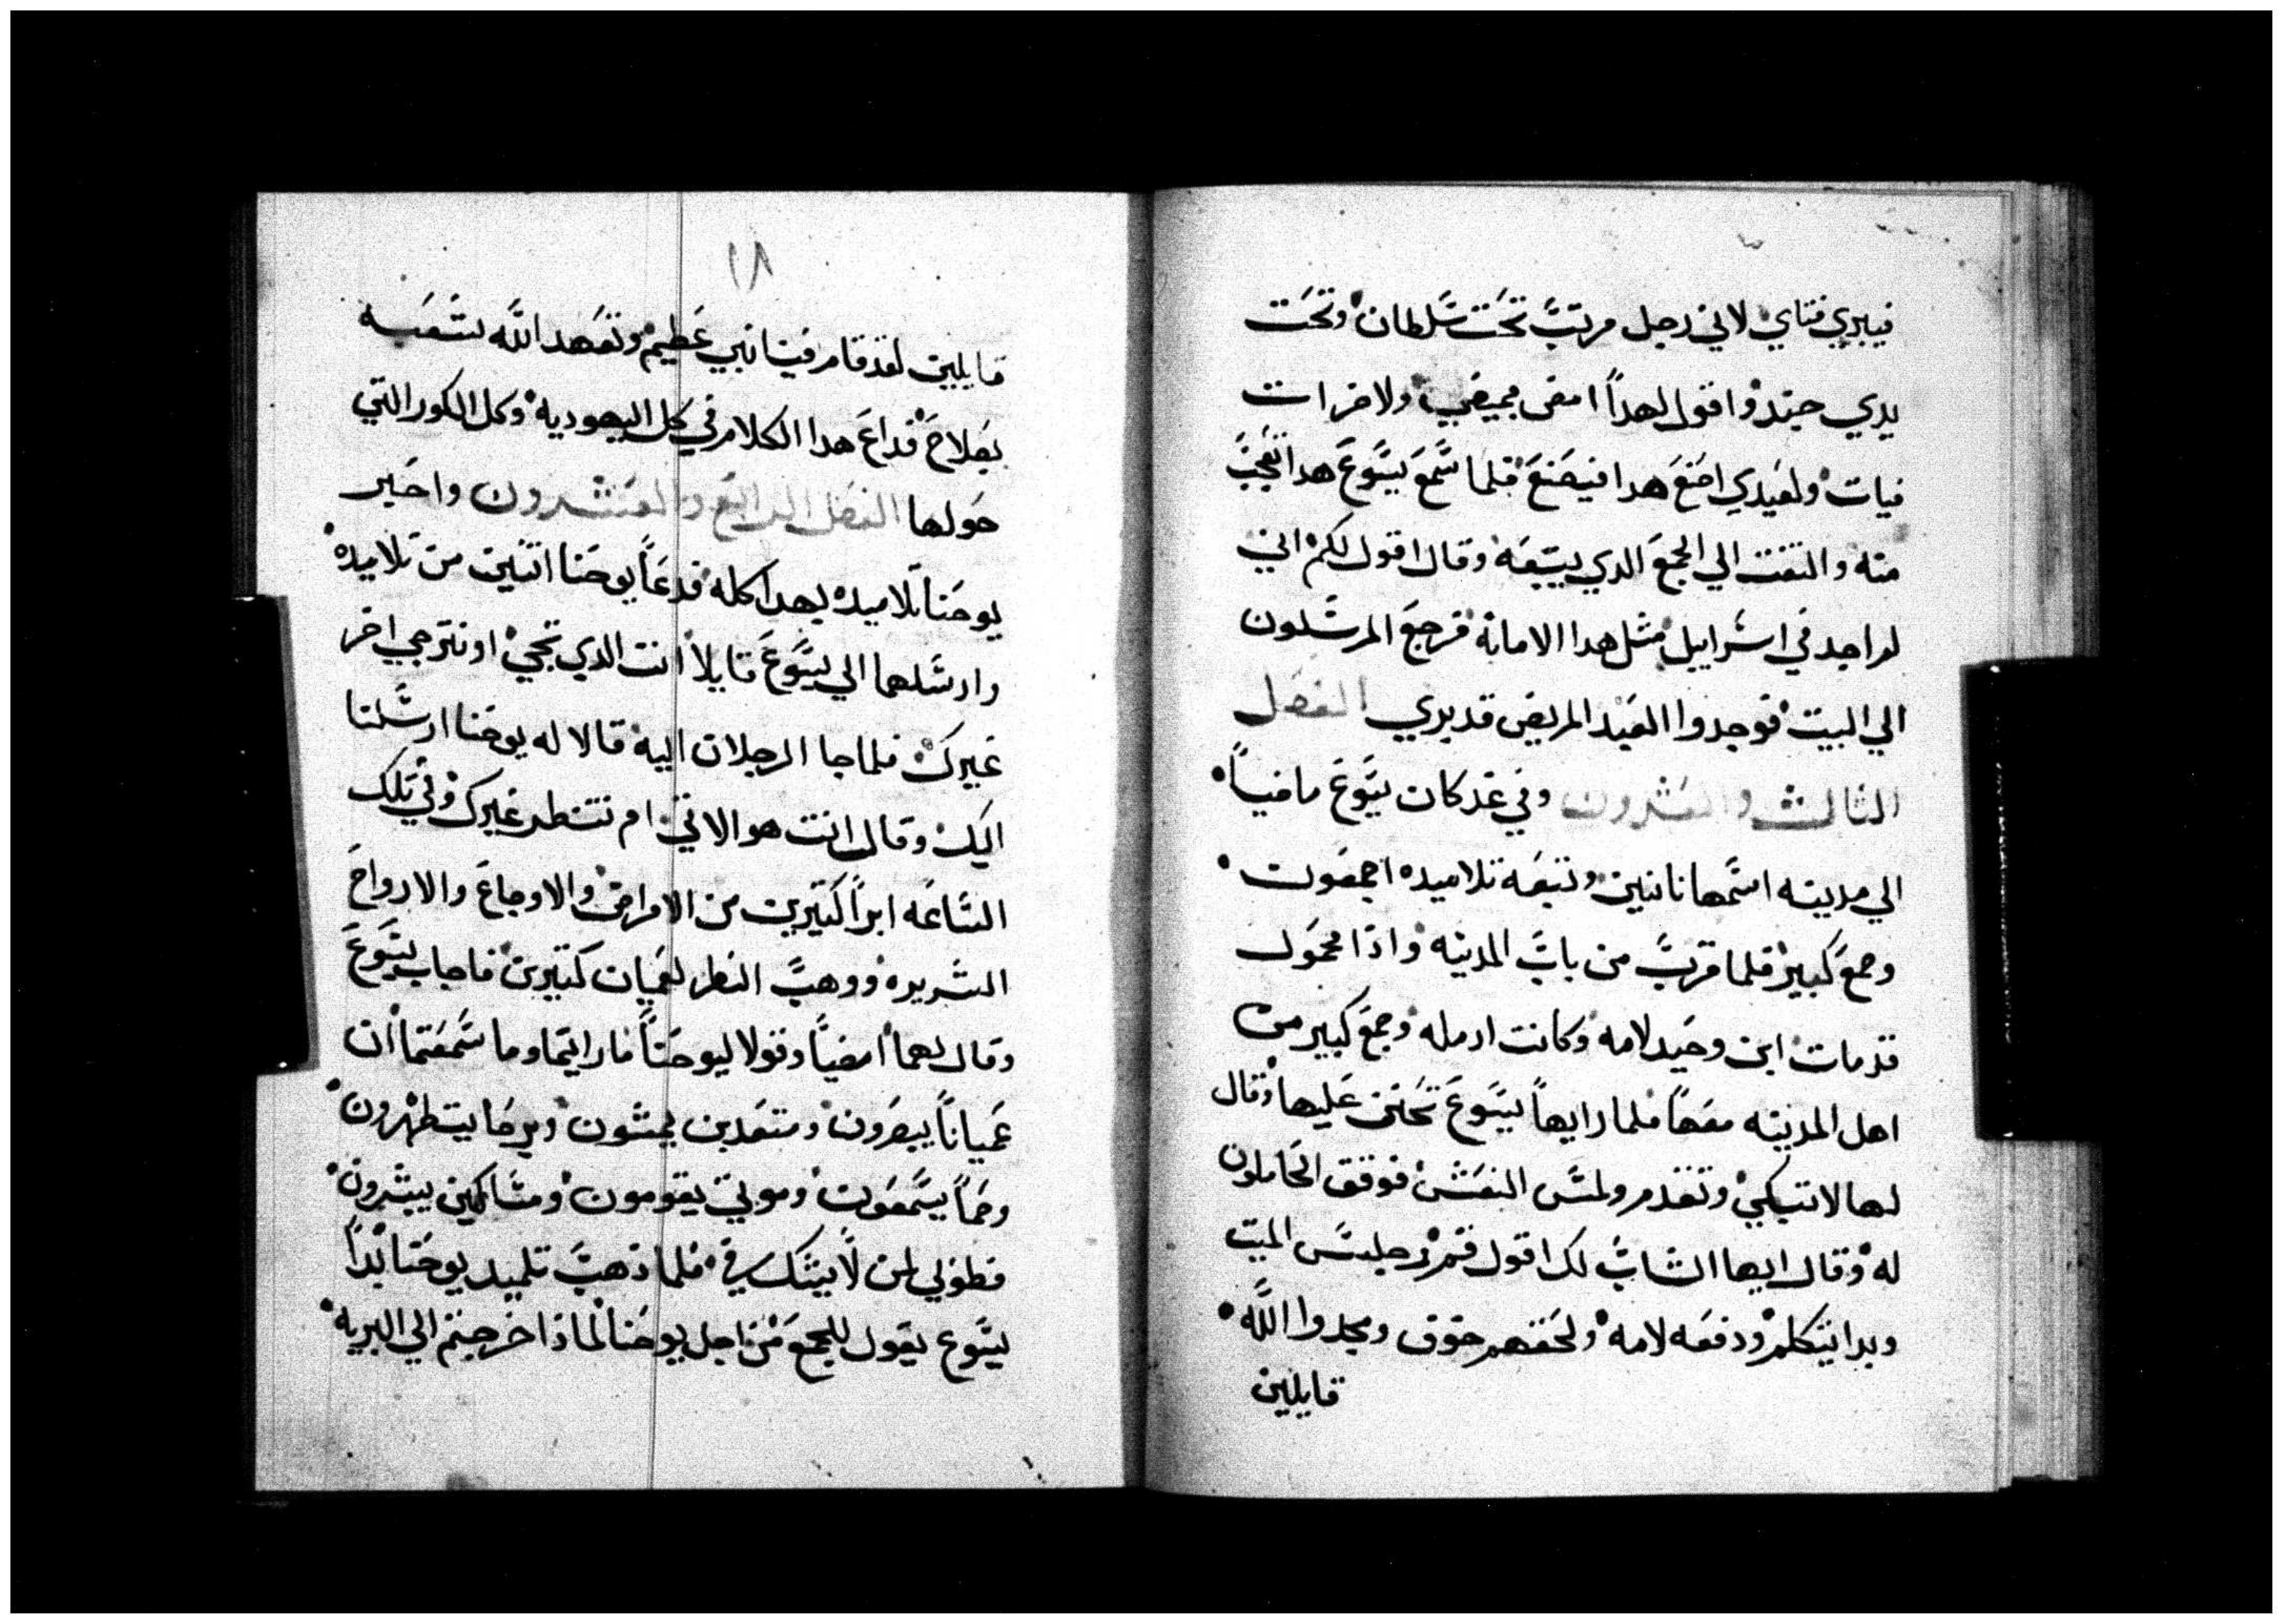 فيبري فتاي لاني رجل مرتب تحت سلطان وتحت
يدي جند واقول لهدا امضى فيمضي ولاخر ات
فيات ولعبدي اصنع هدا فيصنع فلما سمع يسوع هدا تعجب
منه والتفت الي الجمع الدي يتبعه وقال اقول لكم اني
لم اجد في اسراييل مثل هدا الامانه فرجع المرسلون
الي البيت فوجدوا العبد المريض قد بري الفصل
الثالث والعشرون وفي غد كان يسوع ماضياً
الي مدينه اسمها نانين وتبعه تلاميده اجمعون
وجمع كبير فلما قرب من باب المدينه واذا محمول
قد مات ابن وحيد لامه وكانت ارمله وجمع كبير من
اهل المدينه معها فلما رايها يسوع تحنن عليها وقال
لها لا تبكي وتقدم ولمس النعش فوقف الحاملون
له وقال ايها الشاب لك اقول قم فجلس الميت
وبدا يتكلم ودفعه لامه ولحقهم خوف ومجدوا الله
قايلين
١٨
قايلين لقد قام فينا نبي عظيم وتعهد الله شعبه
بصلاح فداع هدا الكلام في كل اليهوديه وكل الكور التي
حولها الفصل الرابع والعشرون واخبر
يوحنا تلاميده بهدا كله فدعاً يوحنا اتنين من تلاميده
وارسلهما الي يسوع قايلا انت الدي تجي او نترجي اخر
غيرك فلما جا الرجلان اليه قالا له يوحنا ارسلنا
اليك وقال انت هو الاتي ام ننتطر غيرك وفي تلك
الساعه ابراً كتيرين من الامراض والاوجاع والارواح
الشريره ووهب النطر لعميان كتيرين فاجاب يسوع
وقال لهما امضياً وقولا ليوحناً مارايتما وما سمعتما ان
عمياناً يبصرون ومتعدين يمشون وبرصا يتطهرون
وصماً يسمعون وموتي يقومون ومساكين يبشرون
فطوبي لمن لا يشك في فلما ذهب تلميد يوحنا بدا
يسوع يقول للجمع من اجل يوحنا لماذا خرجتم الي البريه